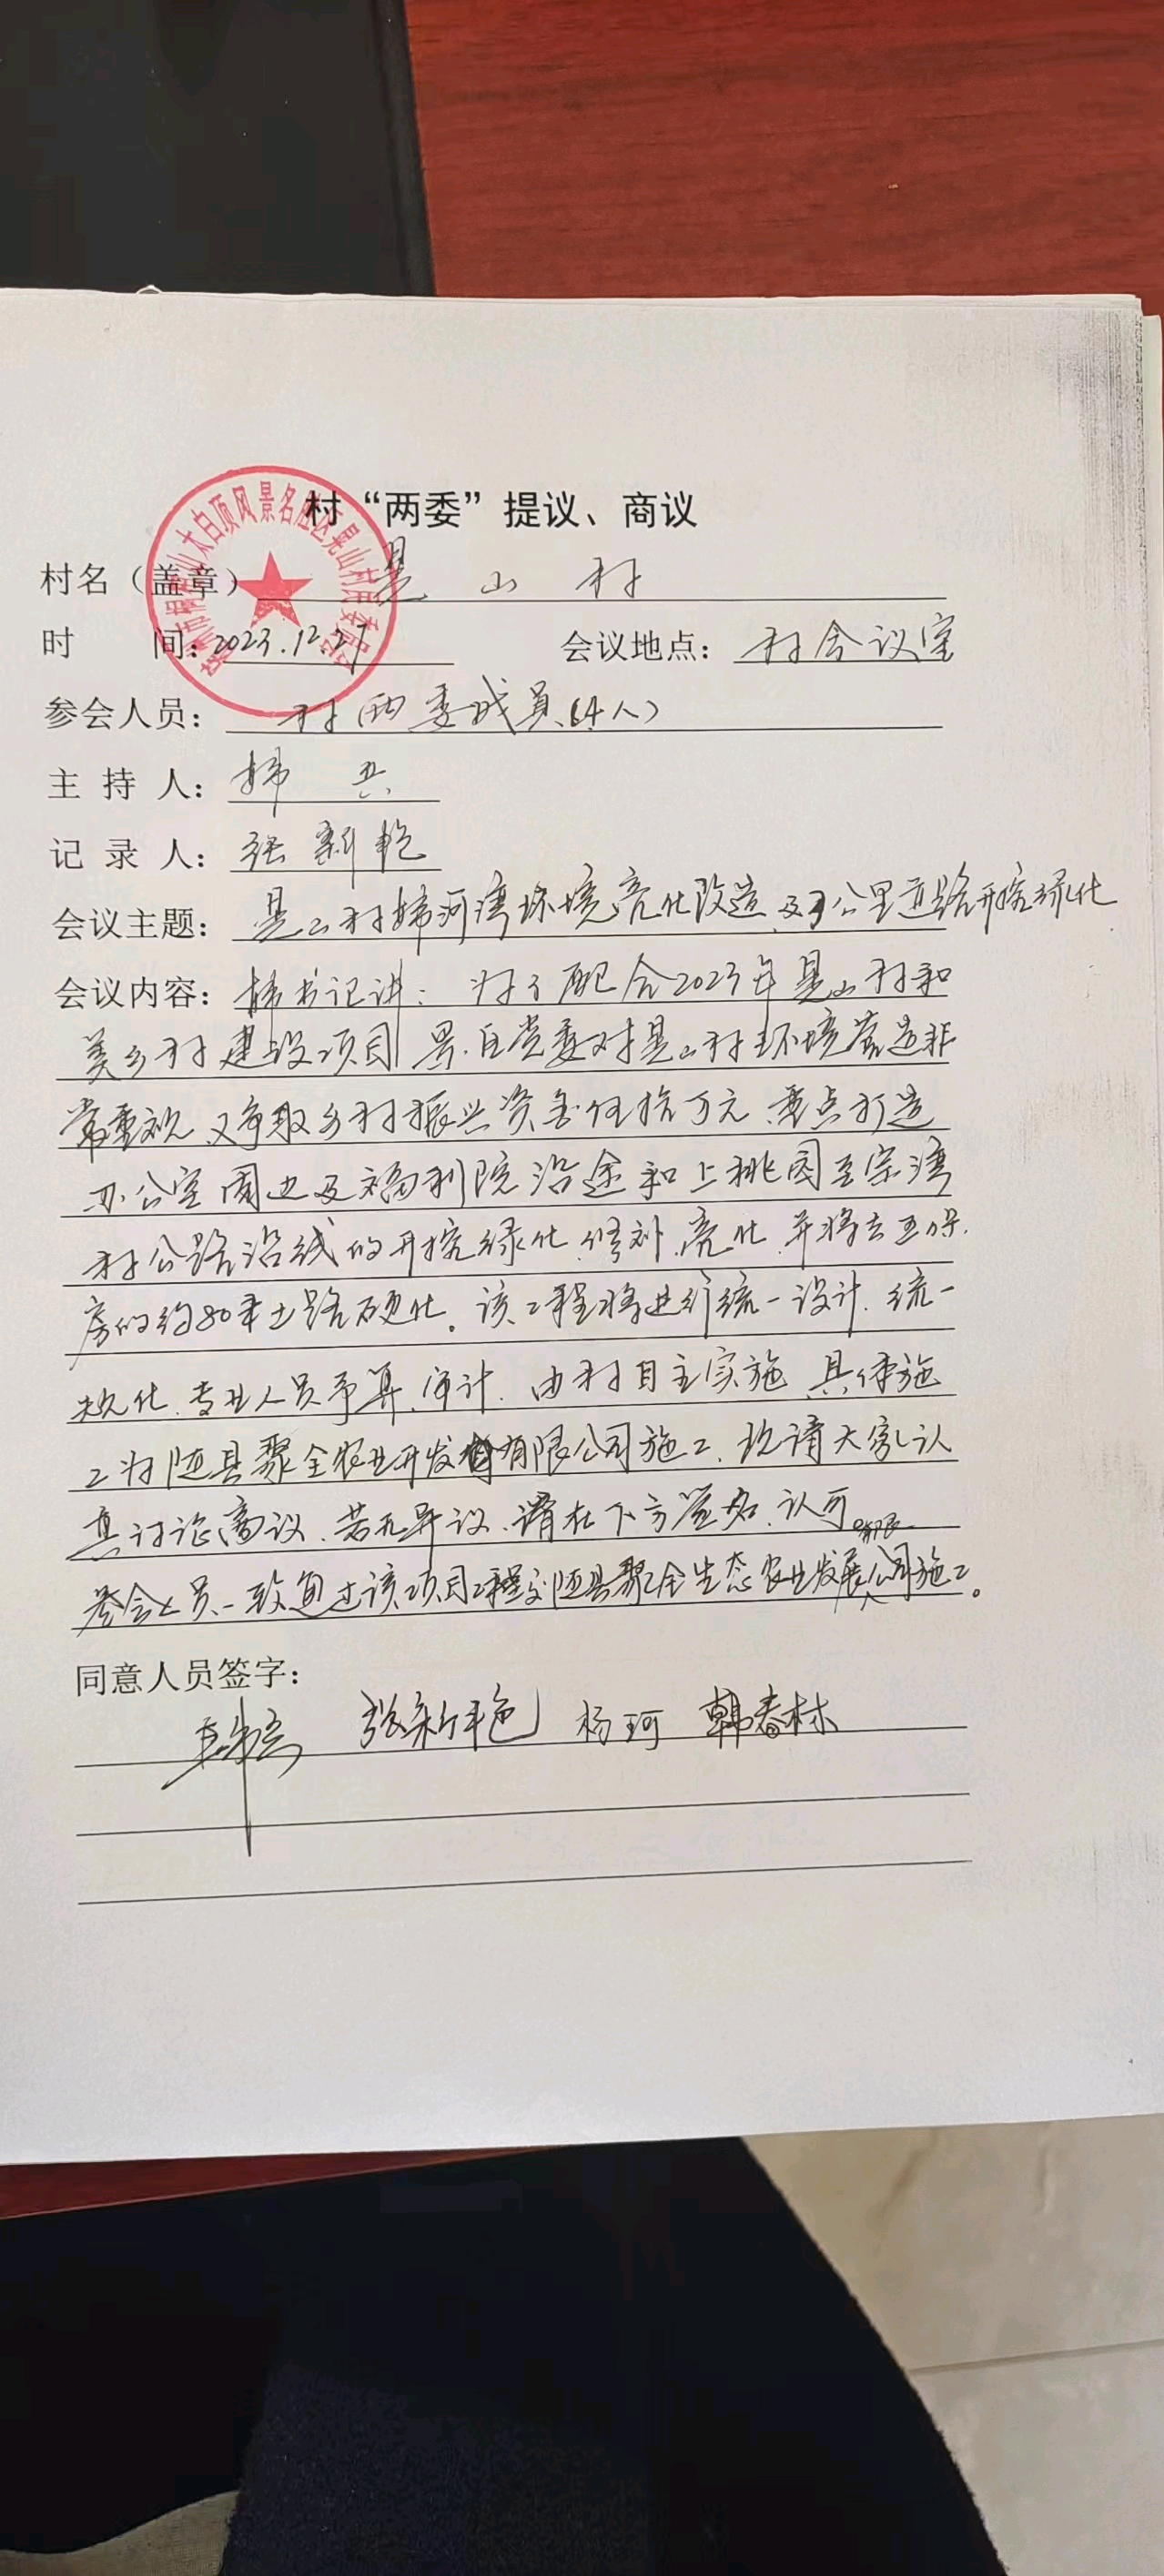 村“两委”提议、商议
村名（盖章） 昙山村
时 间：2023.12.27 会议地点：村会议室
参会人员：村两委成员（4人）
主 持 人：韩
记 录 人：张新艳
会议主题：村韩河湾环境亮化改造及 公里道路开挖绿化
会议内容：韩书记讲：为了配合2023年 山村和
美乡村建设项目 景区党委对 山村环境营造非
常重视，又争取乡村振兴资金伍拾万元，重点打造
办公室周边及福利院沿途和上桃园至宗湾
村公路沿线的开挖绿化、修补、亮化，并将去五保
房的约80米土路硬化。该工程将进行统一设计、统一
规化、专业人员予算、审计，由村自主实施，具体施
工为随县聚全农业开发有限公司施工，现请大家认
真讨论商议，若无异议，请在下方签名，认可。
参会人员一致通过该项目工程交随县聚全生态农业发展有限公司施工。
同意人员签字：
张新艳 杨珂 韩春林
太白顶风景名胜区 山村民委员会